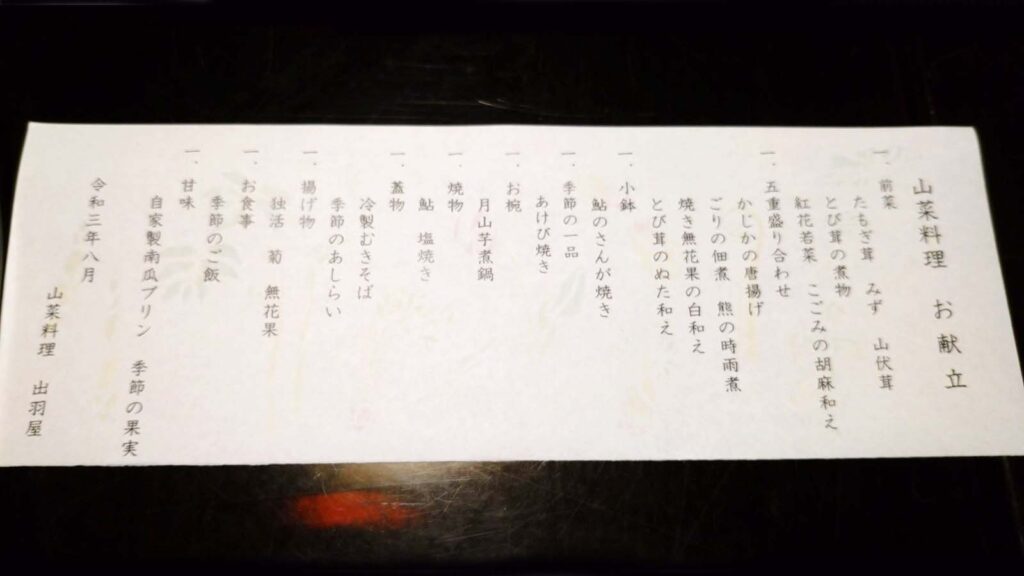 山菜料理　お献立
一、前菜
たもぎ茸　みず　山伏茸
とび茸の煮物
紅花若菜　こごみの胡麻和え
一、五重盛り合わせ
かじかの唐揚げ
ごりの佃煮　熊の時雨煮
焼き無花果の白和え
とび茸のぬた和え
一、小鉢
鮎のさんが焼き
一、季節の一品
あけび焼き
一、お椀
月山芋煮鍋
一、焼物
鮎　塩焼き
一、蓋物
冷製むきそば
季節のあしらい
一、揚げ物
独活　菊　無花果
一、お食事
季節のご飯
一、甘味
自家製南瓜プリン　季節の果実
令和三年八月
山菜料理　出羽屋